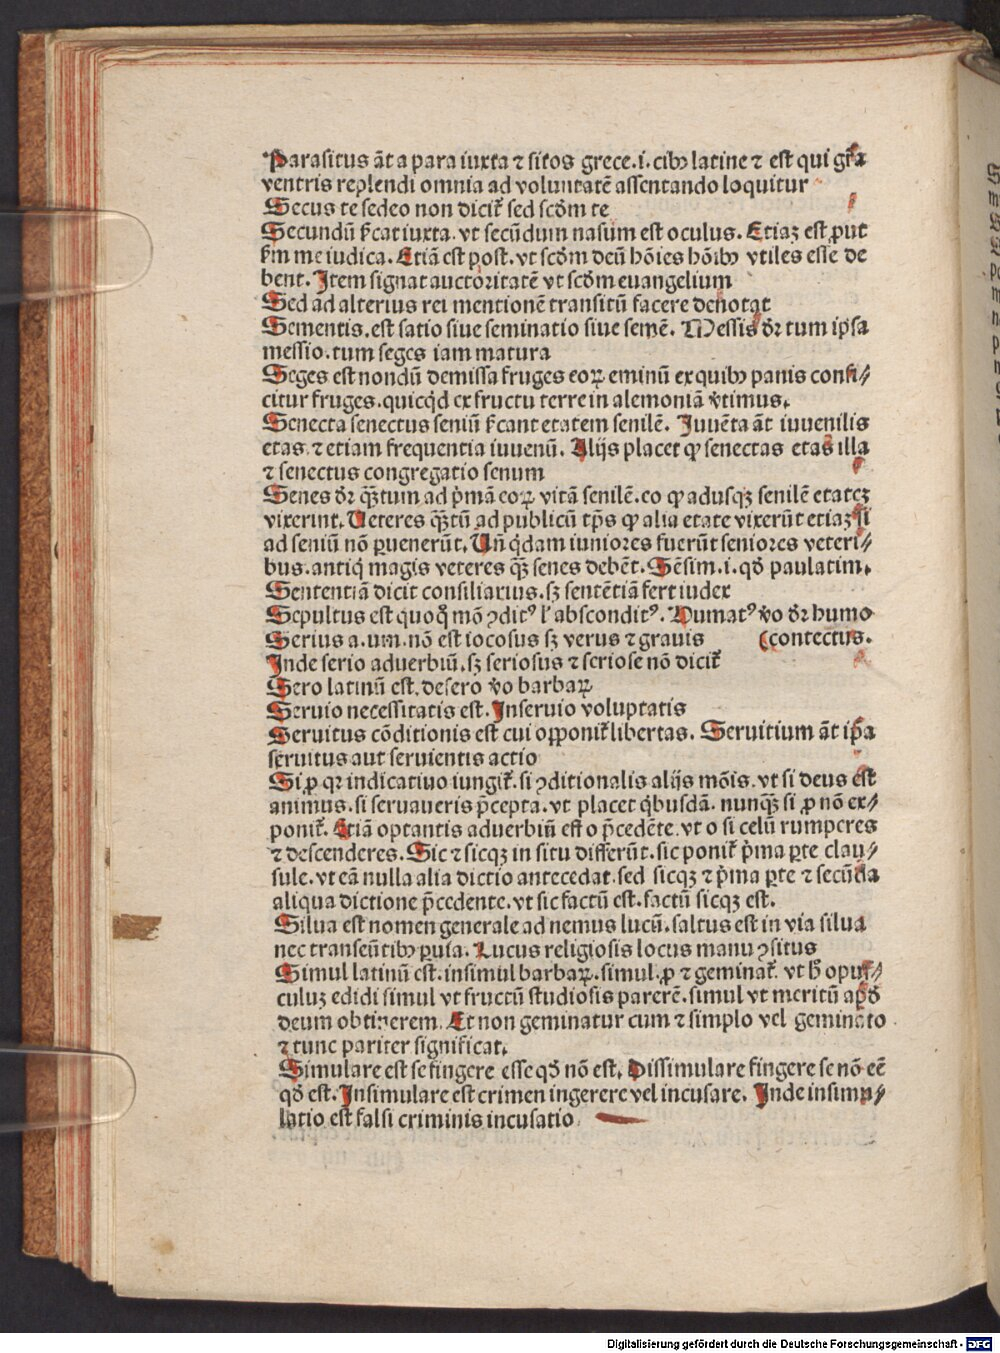 Parasitus āt a para iuxta ⁊ sitos grece.i.cibꝰ latine ⁊ est qui gr̄a
ventris replendi omnia ad voluntatē assentando loquitur
Secus te sedeo non dicit᷑ sed scd̄m te
Secundū sc̄at iuxta.vt secūdum nasum est oculus. Etiaz est ꝓut
sm̄ me iudica. Etiā est post.vt scd̄m deū hōies hōibꝰ vtiles esse de
bent. Item signat auctoritatē vt scd̄m euangelium
Sed ad alterius rei mentionē transitū facere denotat
Sementis.est satio siue seminatio siue semē. Messis dr̄ tum ip̄sa
messio.tum seges iam matura
Seges est nondū demissa fruges eoꝝ eminū ex quibꝰ panis confi⸗
citur fruges.quicq̇d ex fructu terre in alemoniā v̄timus.
Senecta senectus seniū sc̄ant etatem senilē. Iuuēta āt iuuenilis
etas.⁊ etiam frequentia iuuenū. Alijs placet ꝙ senectas etas illa
⁊ senectus congregatio senum
Senes dr̄ qꝫ̄tum ad p̄mā eoꝝ vitā senilē.eo ꝙ adusqꝫ senilē etatez
vixerint. Ueteres qꝫ̄tū ad publicū tp̄s ꝙ alia etate vixerūt etiaz si
ad seniū nō ꝑuenerūt. Un̄ q̇dam iuniores fuerūt seniores veteri⸗
bus.antiq̇ magis veteres qꝫ̄ senes debēt. Sēsim.i.qd̄ paulatim.
Sententiā dicit consiliarius.sꝫ sentētiā fert iudex
Sepultus est quoq̄ mō ꝯditꝰ l' absconditꝰ. Humatꝰ v̄o dr̄ humo
Serius a.um.nō est iocosus sꝫ verus ⁊ grauis (contectus.
Inde serio aduerbiū.sꝫ seriosus ⁊ seriose nō dicit᷑
Sero latinū est.desero v̄o barbaꝝ
Seruio necessitatis est. Inseruio voluptatis
Seruitus cōditionis est cui opponit᷑ libertas. Seruitium āt ip̄a
seruitus aut seruientis actio
Si ꝓ qr̄ indicatiuo iungit᷑.si ꝯditionalis alijs mōis.vt si deus est
animus.si seruaueris p̄cepta.vt placet q̇busdā.nunqꝫ̄ si ꝓ nō ex⸗
ponit᷑. Etiā optantis aduerbiū est o p̄cedēte.vt o si celū rumperes
⁊ descenderes. Sic ⁊ sicqꝫ in situ differūt.sic ponit᷑ p̄ma ꝑte clau⸗
sule.vt eā nulla alia dictio antecedat.sed sicqꝫ ⁊ p̄ma ꝑte ⁊ secūda
aliqua dictione p̄cedente.vt sic factū est.factū sicqꝫ est.
Silua est nomen generale ad nemus lucū.saltus est in via silua
nec transeūtibꝰ ꝑuia. Lucus religiosis locus manu ꝯsitus
Simul latinū est.insimul barbaꝝ.simul.ꝓ ⁊ geminat᷑. vt h̄ opus⸗
culuz edidi simul vt fructū studiosis parerē.simul vt meritū apd̄
deum obtinerem. Et non geminatur cum ⁊ simplo vel geminato
⁊ tunc pariter significat.
Simulare est se fingere esse qd̄ nō est. Dissimulare fingere se nō eē
qd̄ est. Insimulare est crimen ingerere vel incusare. Inde insimu⸗
latio est falsi criminis incusatio
Digitalisierung gefördert durch die Deutsche Forschungsgemeinschaft - DFG